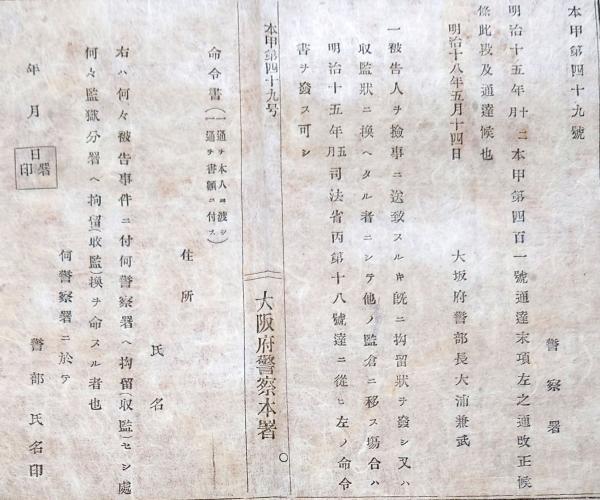 本甲第四十九號
警察署
明治十五年十二月本甲第四百一號通達末項左之通改正候
條此段及通達候也
明治十八年五月十四日
大坂府警部長大浦兼武
一被告人ヲ撿事ニ送致スルキ既ニ拘留狀ヲ發シ又ハ
収監狀ニ換ヘタル者ニシテ他ノ監倉ニ移ス塲合ハ
明治十五年五月司法省丙第十八號達ニ從ヒ左ノ命令
書ヲ發ス可シ
本甲第四十九号
大阪府警察本署
命令書(一通ヲ本人ニ渡シ
一通ヲ書類ニ付ス)
住所
氏名
右ハ何々被告事件ニ付何警察署ヘ拘留(収監)セシ處
何々監獄分署ヘ拘留(収監)換ヲ命スル者也
何警察署ニ於テ
年月日
署印
警部氏名印